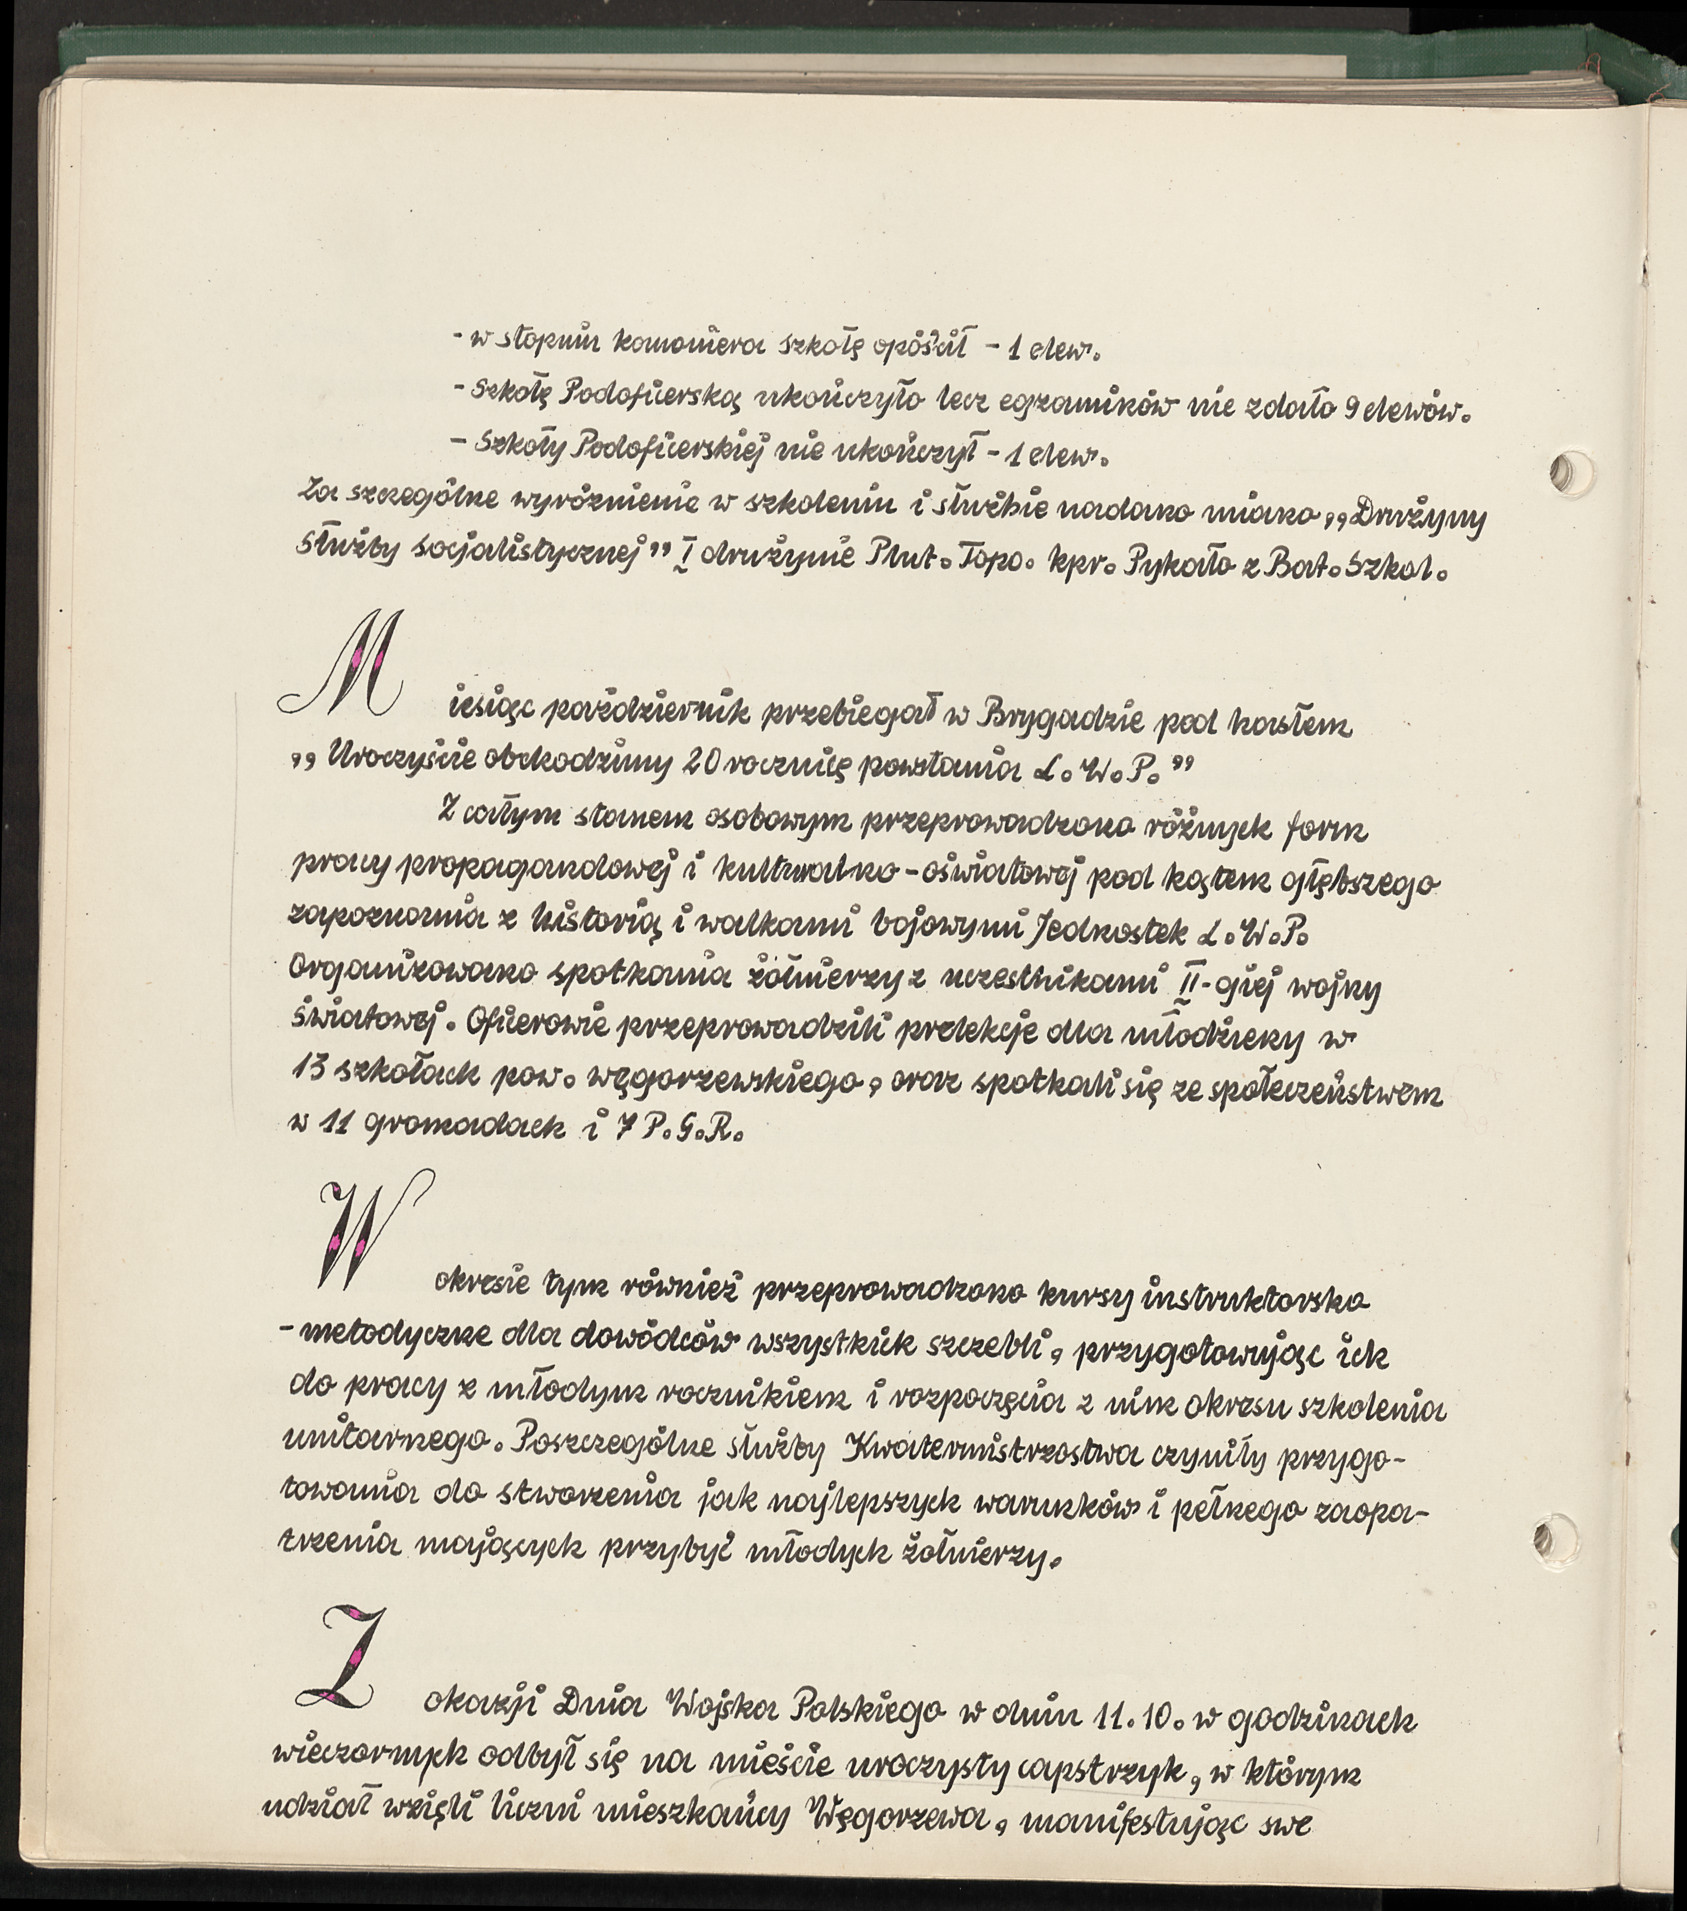 - w stopniu kanoniera szkołę opóścił - 1 elew.
- Szkołę Podoficerską ukończyło lecz egzaminów nie zdało 9 elewów.
- Szkoły Podoficerskiej nie ukończył - 1 elew.
Za szczególne wyróżnienie w szkoleniu i służbie nadano miano „Drużyny
Służby Socjalistycznej” I drużynie Plut. Topo. kpr. Pykało z Bat. Szkol.
Miesiąc październik przebiegał w Brygadzie pod hasłem
„Uroczyście obchodzimy 20 rocznicę powstania L.W.P.”
Z całym stanem osobowym przeprowadzono różnych form
pracy propagandowej i kulturalno-oświatowej pod kątem głębszego
zapoznania z historią i walkami bojowymi Jednostek L.W.P.
Organizowano spotkania żołnierzy z uczestnikami II-giej wojny
światowej. Oficerowie przeprowadzili prelekcje dla młodzieży w
13 szkołach pow. węgorzewskiego, oraz spotkali się ze społeczeństwem
w 11 gromadach i 7 P.G.R.
W okresie tym również przeprowadzono kursy instruktorsko
-metodyczne dla dowódców wszystkich szczebli, przygotowując ich
do pracy z młodym rocznikiem i rozpoczęcia z nim okresu szkolenia
unitarnego. Poszczególne służby Kwatermistrzostwa czyniły przygo-
towania do stworzenia jak najlepszych warunków i pełnego zaopa-
trzenia mających przybyć młodych żołnierzy.
Z okazji Dnia Wojska Polskiego w dniu 11.10. w godzinach
wieczornych odbył się na mieście uroczysty capstrzyk, w którym
udział wzięli liczni mieszkańcy Węgorzewa, manifestując swe